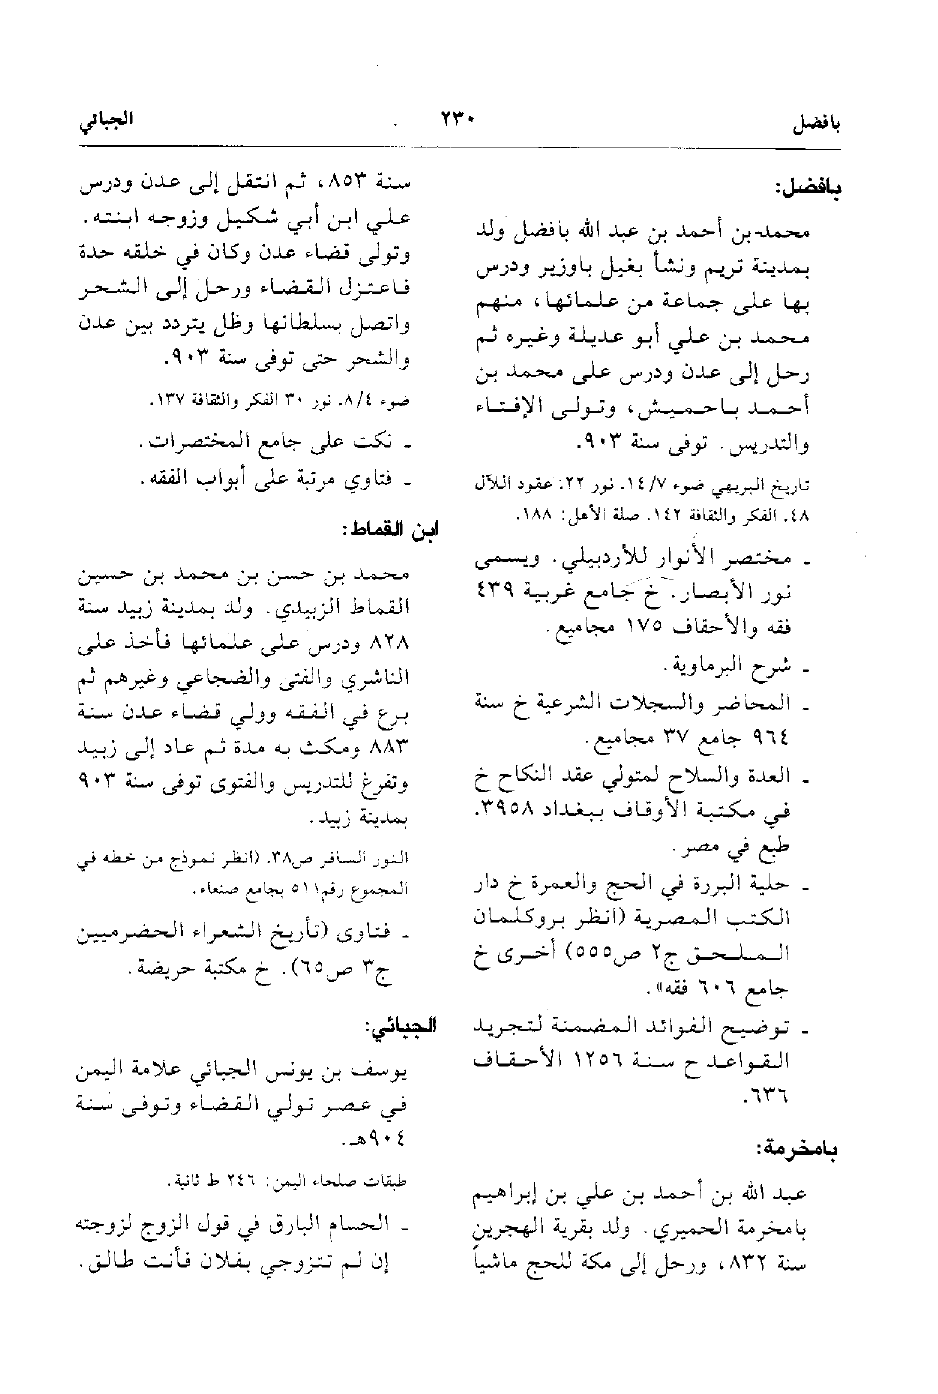 بافضل
٢٣٠
الجبائي
بافضل:
محمد بن أحمد بن عبد الله بافضل ولد
بمدينة تريم ونشأ بغيل باوزير ودرس
بها على جماعة من علمائها، منهم
محمد بن علي أبو عديلة وغيره ثم
رحل إلى عدن ودرس على محمد بن
أحمد باحميش، وتولى الإفتاء
والتدريس. توفى سنة ٩٠٣.
تاريخ البريهي ضوء ١٤/٧. نور ٢٢. عقود اللآل
٤٨. الفكر والثقافة ١٤٢. صلة الأهل: ١٨٨.
ـ مختصر الأنوار للأردبيلي. ويسمى
نور الأبصار. خ جامع غربية ٤٣٩
فقه والأحقاف ١٧٥ مجاميع.
ـ شرح البرماوية.
ـ المحاضر والسجلات الشرعية خ سنة
٩٦٤ جامع ٣٧ مجاميع.
ـ العدة والسلاح لمتولي عقد النكاح خ
في مكتبة الأوقاف ببغداد ٣٩٥٨.
طبع في مصر.
ـ حلية البررة في الحج والعمرة خ دار
الكتب المصرية (انظر بروكلمان
الملحق ج٢ ص٥٥٥) أخرى خ
جامع ٦٠٦ فقه».
ـ توضيح الفوائد المضمنة لتجريد
القواعد ح سنة ١٢٥٦ الأحقاف
٦٣٦.
بامخرمة:
عبد الله بن أحمد بن علي بن إبراهيم
بامخرمة الحميري. ولد بقرية الهجرين
سنة ٨٣٢، ورحل إلى مكة للحج ماشياً
سنة ٨٥٣، ثم انتقل إلى عدن ودرس
علي ابن أبي شكيل وزوجه ابنته.
وتولى قضاء عدن وكان في خلقه حدة
فاعتزل القضاء ورحل إلى الشحر
واتصل بسلطانها وظل يتردد بين عدن
والشحر حتى توفى سنة ٩٠٣.
ضوء ٨/٤. نور ٣٠ الفكر والثقافة ١٣٧.
ـ نكت على جامع المختصرات.
ـ فتاوي مرتبة على أبواب الفقه.
ابن القماط:
محمد بن حسن بن محمد بن حسين
القماط الزبيدي. ولد بمدينة زبيد سنة
٨٢٨ ودرس على علمائها فأخذ على
الناشري والفتى والضجاعي وغيرهم ثم
برع في الفقه وولي قضاء عدن سنة
٨٨٣ ومكث به مدة ثم عاد إلى زبيد
وتفرغ للتدريس والفتوى توفى سنة ٩٠٣
بمدينة زبيد.
النور السافر ص٣٨. (انظر نموذج من خطه في
المجموع رقم٥١١ بجامع صنعاء.
ـ فتاوى (تأريخ الشعراء الحضرميين
ج٣ ص٦٥). خ مكتبة حريضة.
الجبائي:
يوسف بن يونس الجبائي علامة اليمن
في عصر تولي القضاء وتوفى سنة
٩٠٤هـ.
طبقات صلحاء اليمن: ٢٤٦ ط ثانية.
ـ الحسام البارق في قول الزوج لزوجته
إن لم تتزوجي بفلان فأنت طالق.